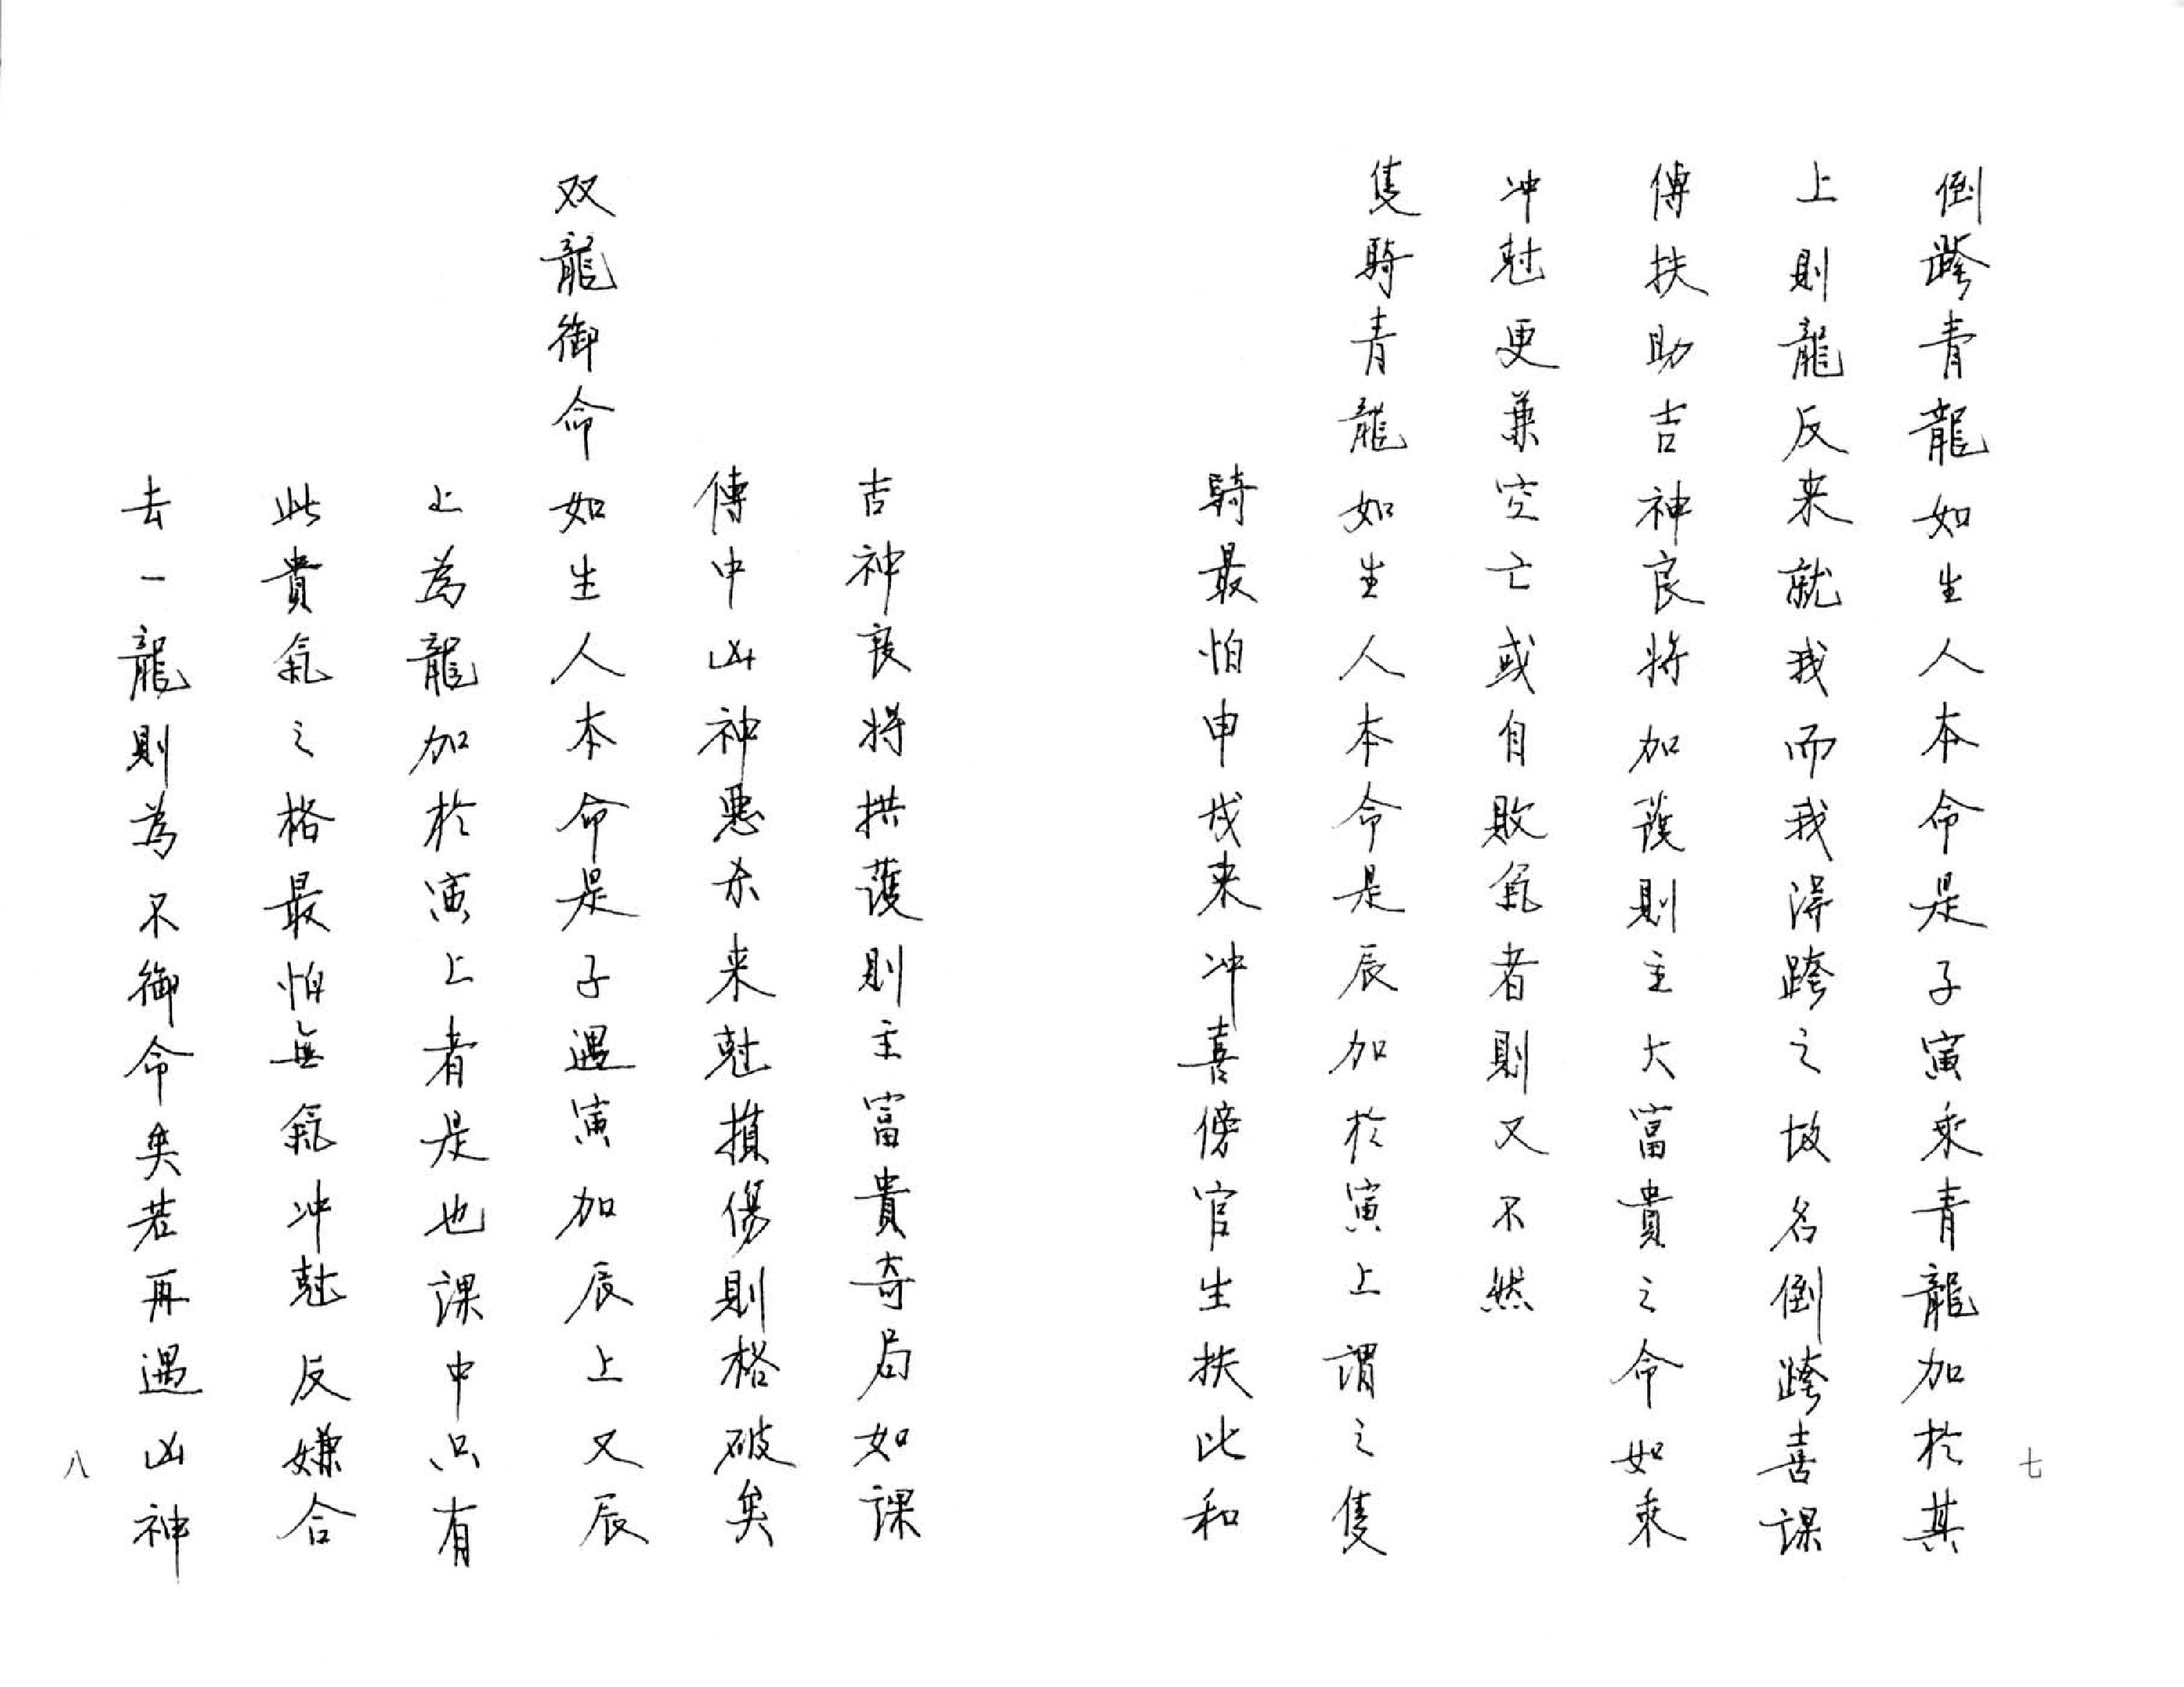 倒跨青龍如生人本命是子寅乘青龍加於其
上則龍反来就我而我得跨之故名倒跨喜課
傳扶助吉神良將加護則主大富貴之命如乘
冲尅更兼空亡或自敗氣者則又不然
隻騎青龍如生人本命是辰加於寅上謂之隻
騎最怕申戌来冲喜傍官生扶比和
七
吉神良將拱護則主富貴奇局如課
傳中凶神惡杀来尅損傷則格破矣
双龍御命如生人本命是子遇寅加辰上又辰
上為龍加於寅上者是也課中只有
此貴氣之格最怕無氣冲尅反嫌合
去一龍則為不御命矣若再遇凶神
八